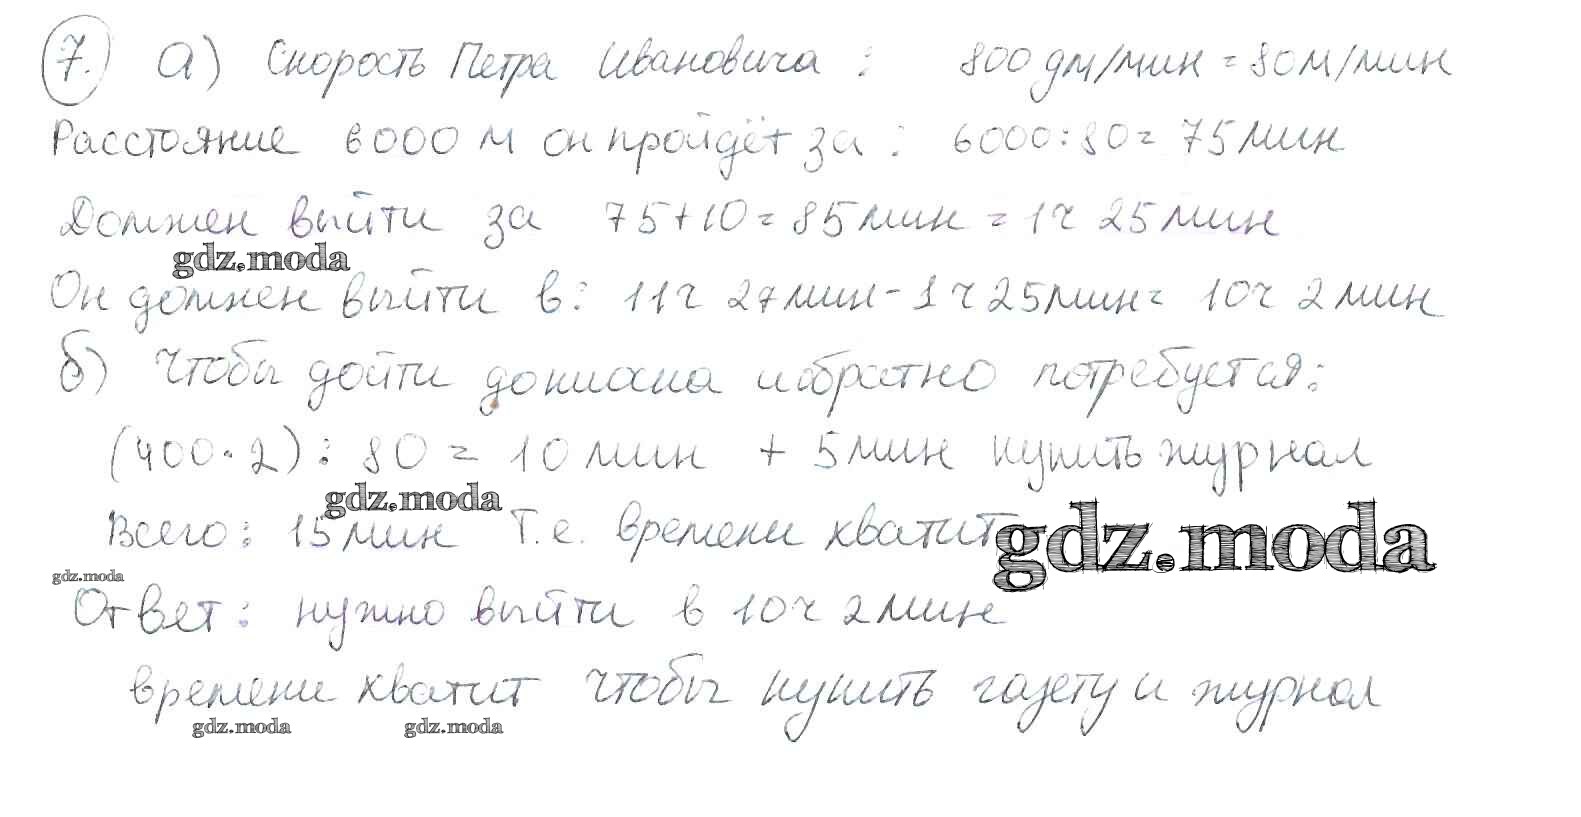 7. а) Скорость Петра Ивановича : 800 дм/мин = 80 м/мин
Расстояние 6000 м он пройдёт за : 6000:80= 75 мин
Должен выйти за 75+10= 85 мин = 1ч 25 мин
gdz.moda
Он должен выйти в: 11ч 27мин-1ч25мин= 10ч 2мин
б) Чтобы дойти до киоска и обратно потребуется:
(400·2) : 80 = 10 мин + 5 мин купить журнал
gdz.moda
Всего: 15 мин Т.е. времени хватит
gdz.moda
gdz.moda
Ответ: нужно выйти в 10ч 2мин
времени хватит чтобы купить газету и журнал
gdz.moda gdz.moda